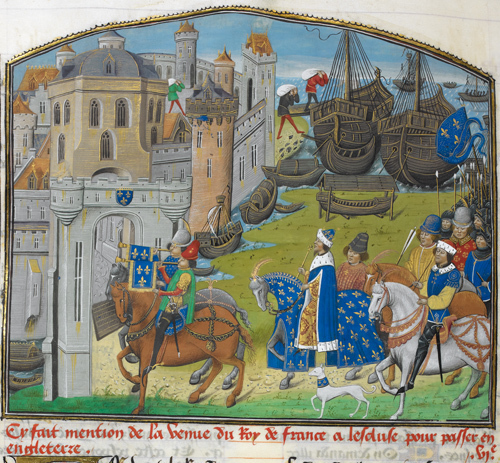 Cy fait mention de la venue du Roy de france a lescluse pour passer en
engleterre.